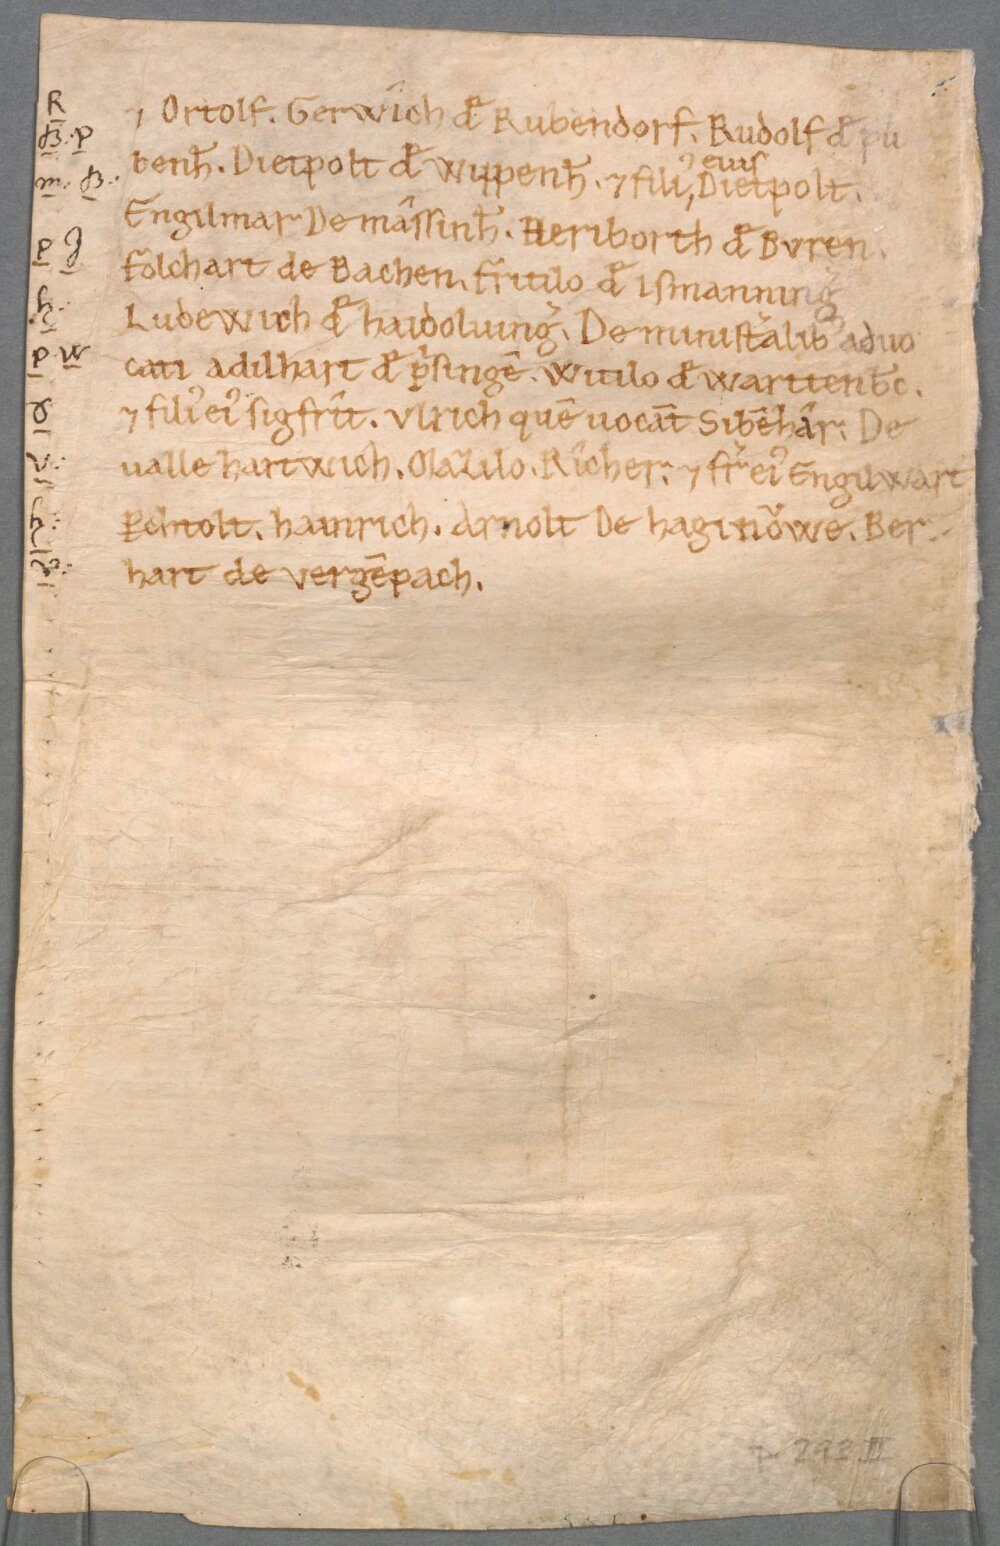 ⁊ Ortolf. Gerwîch d̄ Rubendorf. Rudolf d̄ pu
benh̄. Dietpolt d̄ Wippenh̄. ⁊ fili᾽, Dietpolt.
eius
Engilmar De mâssinh̄. Heriborth d̄ Bvren.
folchart de Bachen. frûtilo d̄ Ismanning᾽
Ludewich d̄ haidoluing᾽. De minist᾽alib᾽ aduo
cati adilhart d̄ p᾽singē. Witilo d̄ Warttenb̄c.
⁊ fili᾽ ei᾽ sigfrît. Vlrich quē uocāt Sibēhâr. De
ualle hartwich. Olazilo. Rîcher. ⁊ fr̄ ei᾽ Engilwart
P̲chtolt. hainrich. Arnolt De haginôwe. Ber
hart de vergēpach.
R
B. p
m. B.
p J
h.
p w
v.
h.
p. 293 II